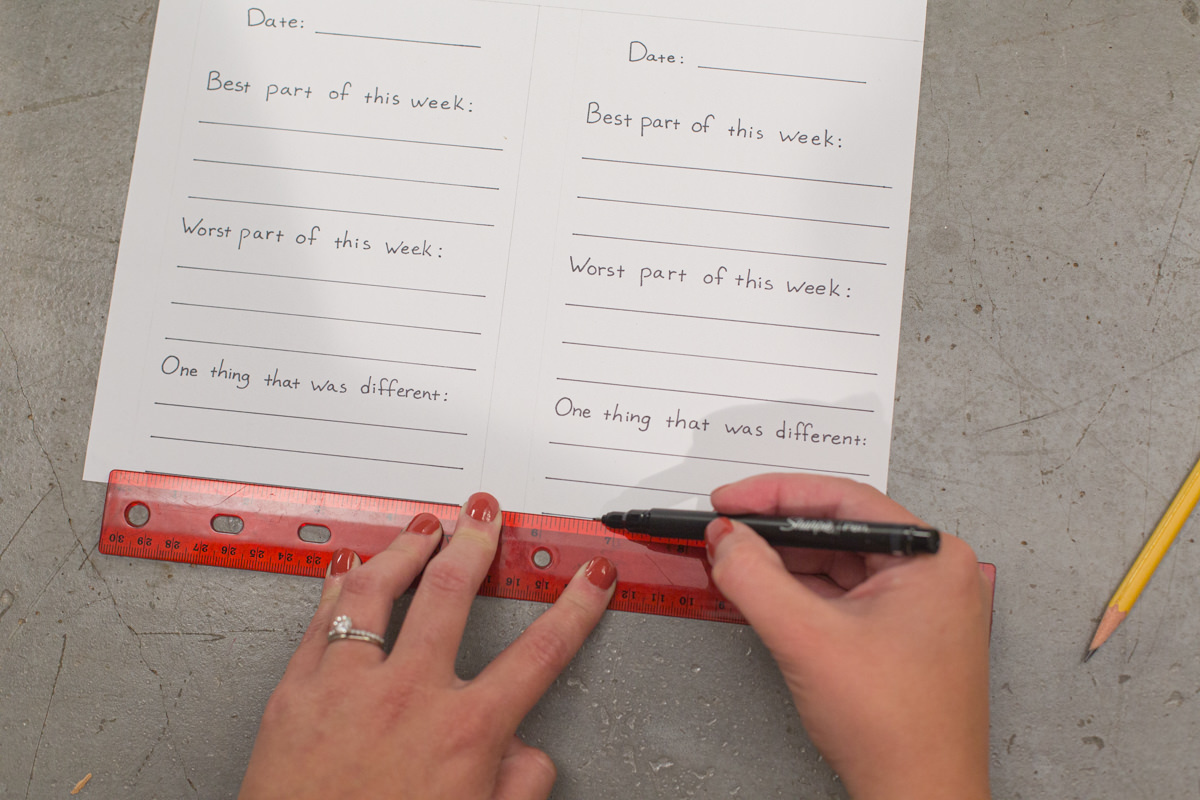 Date:
Best part of this week:
Worst part of this week:
One thing that was different:
Date:
Best part of this week:
Worst part of this week:
One thing that was different:
Sharpie PEN
6 7 8
30 29 28 27 26 25 24 23 16 15 12 11 10 9